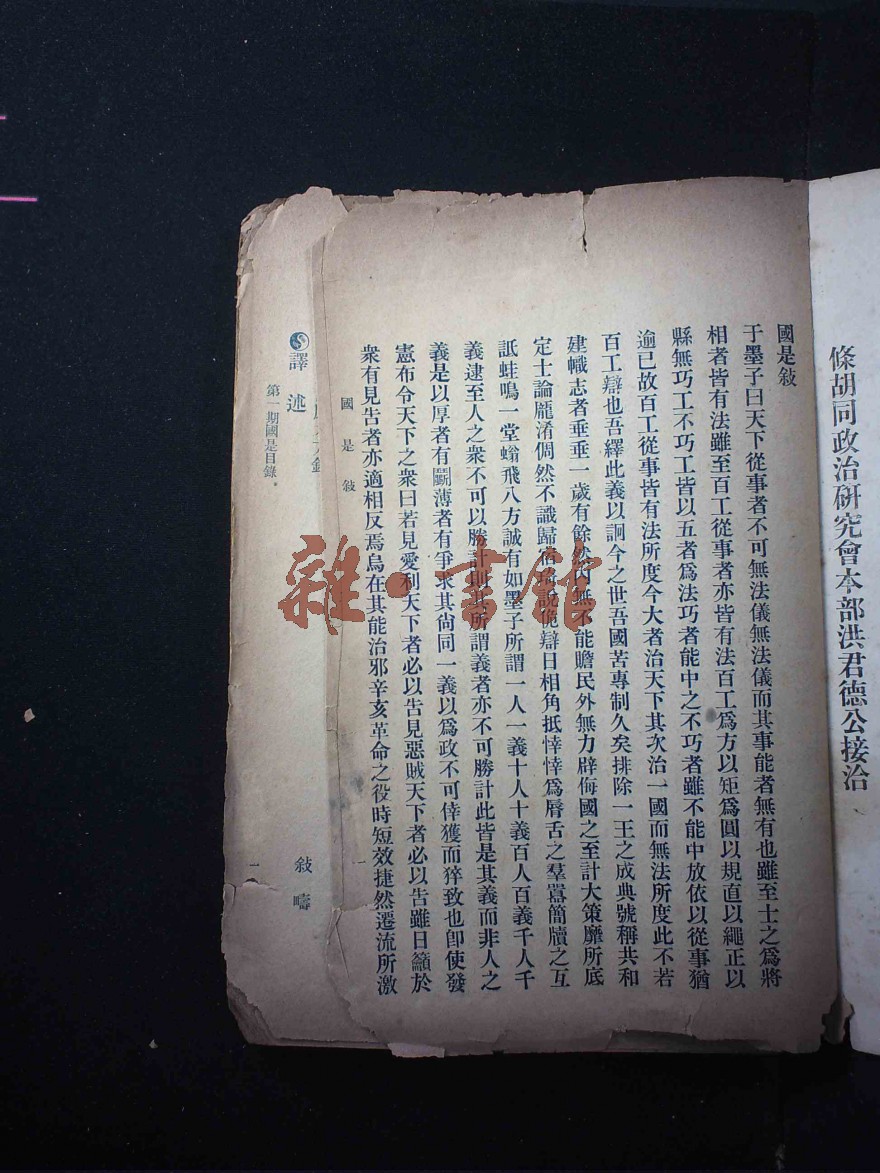 條胡同政治研究會本部洪君德公接治、
國是敍
于墨子曰天下從事者不可無法儀無法儀而其事能者無有也雖至士之爲將
相者皆有法雖至百工從事者亦皆有法百工爲方以矩爲圓以規直以繩正以
縣無巧工不巧工皆以五者爲法巧者能中之不巧者雖不能中放依以從事猶
逾已故百工從事皆有法所度今大者治天下其次治一國而無法所度此不若
百工辯也吾繹此義以詗今之世吾國苦專制久矣排除一王之成典號稱共和
建幟志者垂垂一歲有餘然內無不能贍民外無力辟侮國之至計大策靡所底
定士論龐淆倜然不識歸宿 說詭辯日相角抵悻悻爲脣舌之羣囂簡牘之互
詆蛙鳴一堂蝱飛八方誠有如墨子所謂一人一義十人十義百人百義千人千
義逮至人之衆不可以勝計則其所謂義者亦不可勝計此皆是其義而非人之
義是以厚者有鬭薄者有爭求其尙同一義以爲政不可倖獲而猝致也卽使發
憲布令天下之衆曰若見愛利天下者必以告見惡賊天下者必以告雖日籲於
衆有見告者亦適相反焉烏在其能治邪辛亥革命之役時短效捷然遷流所激
國是敍
一
譯述
敍疇
第一期國是目錄。
一
雜·書館